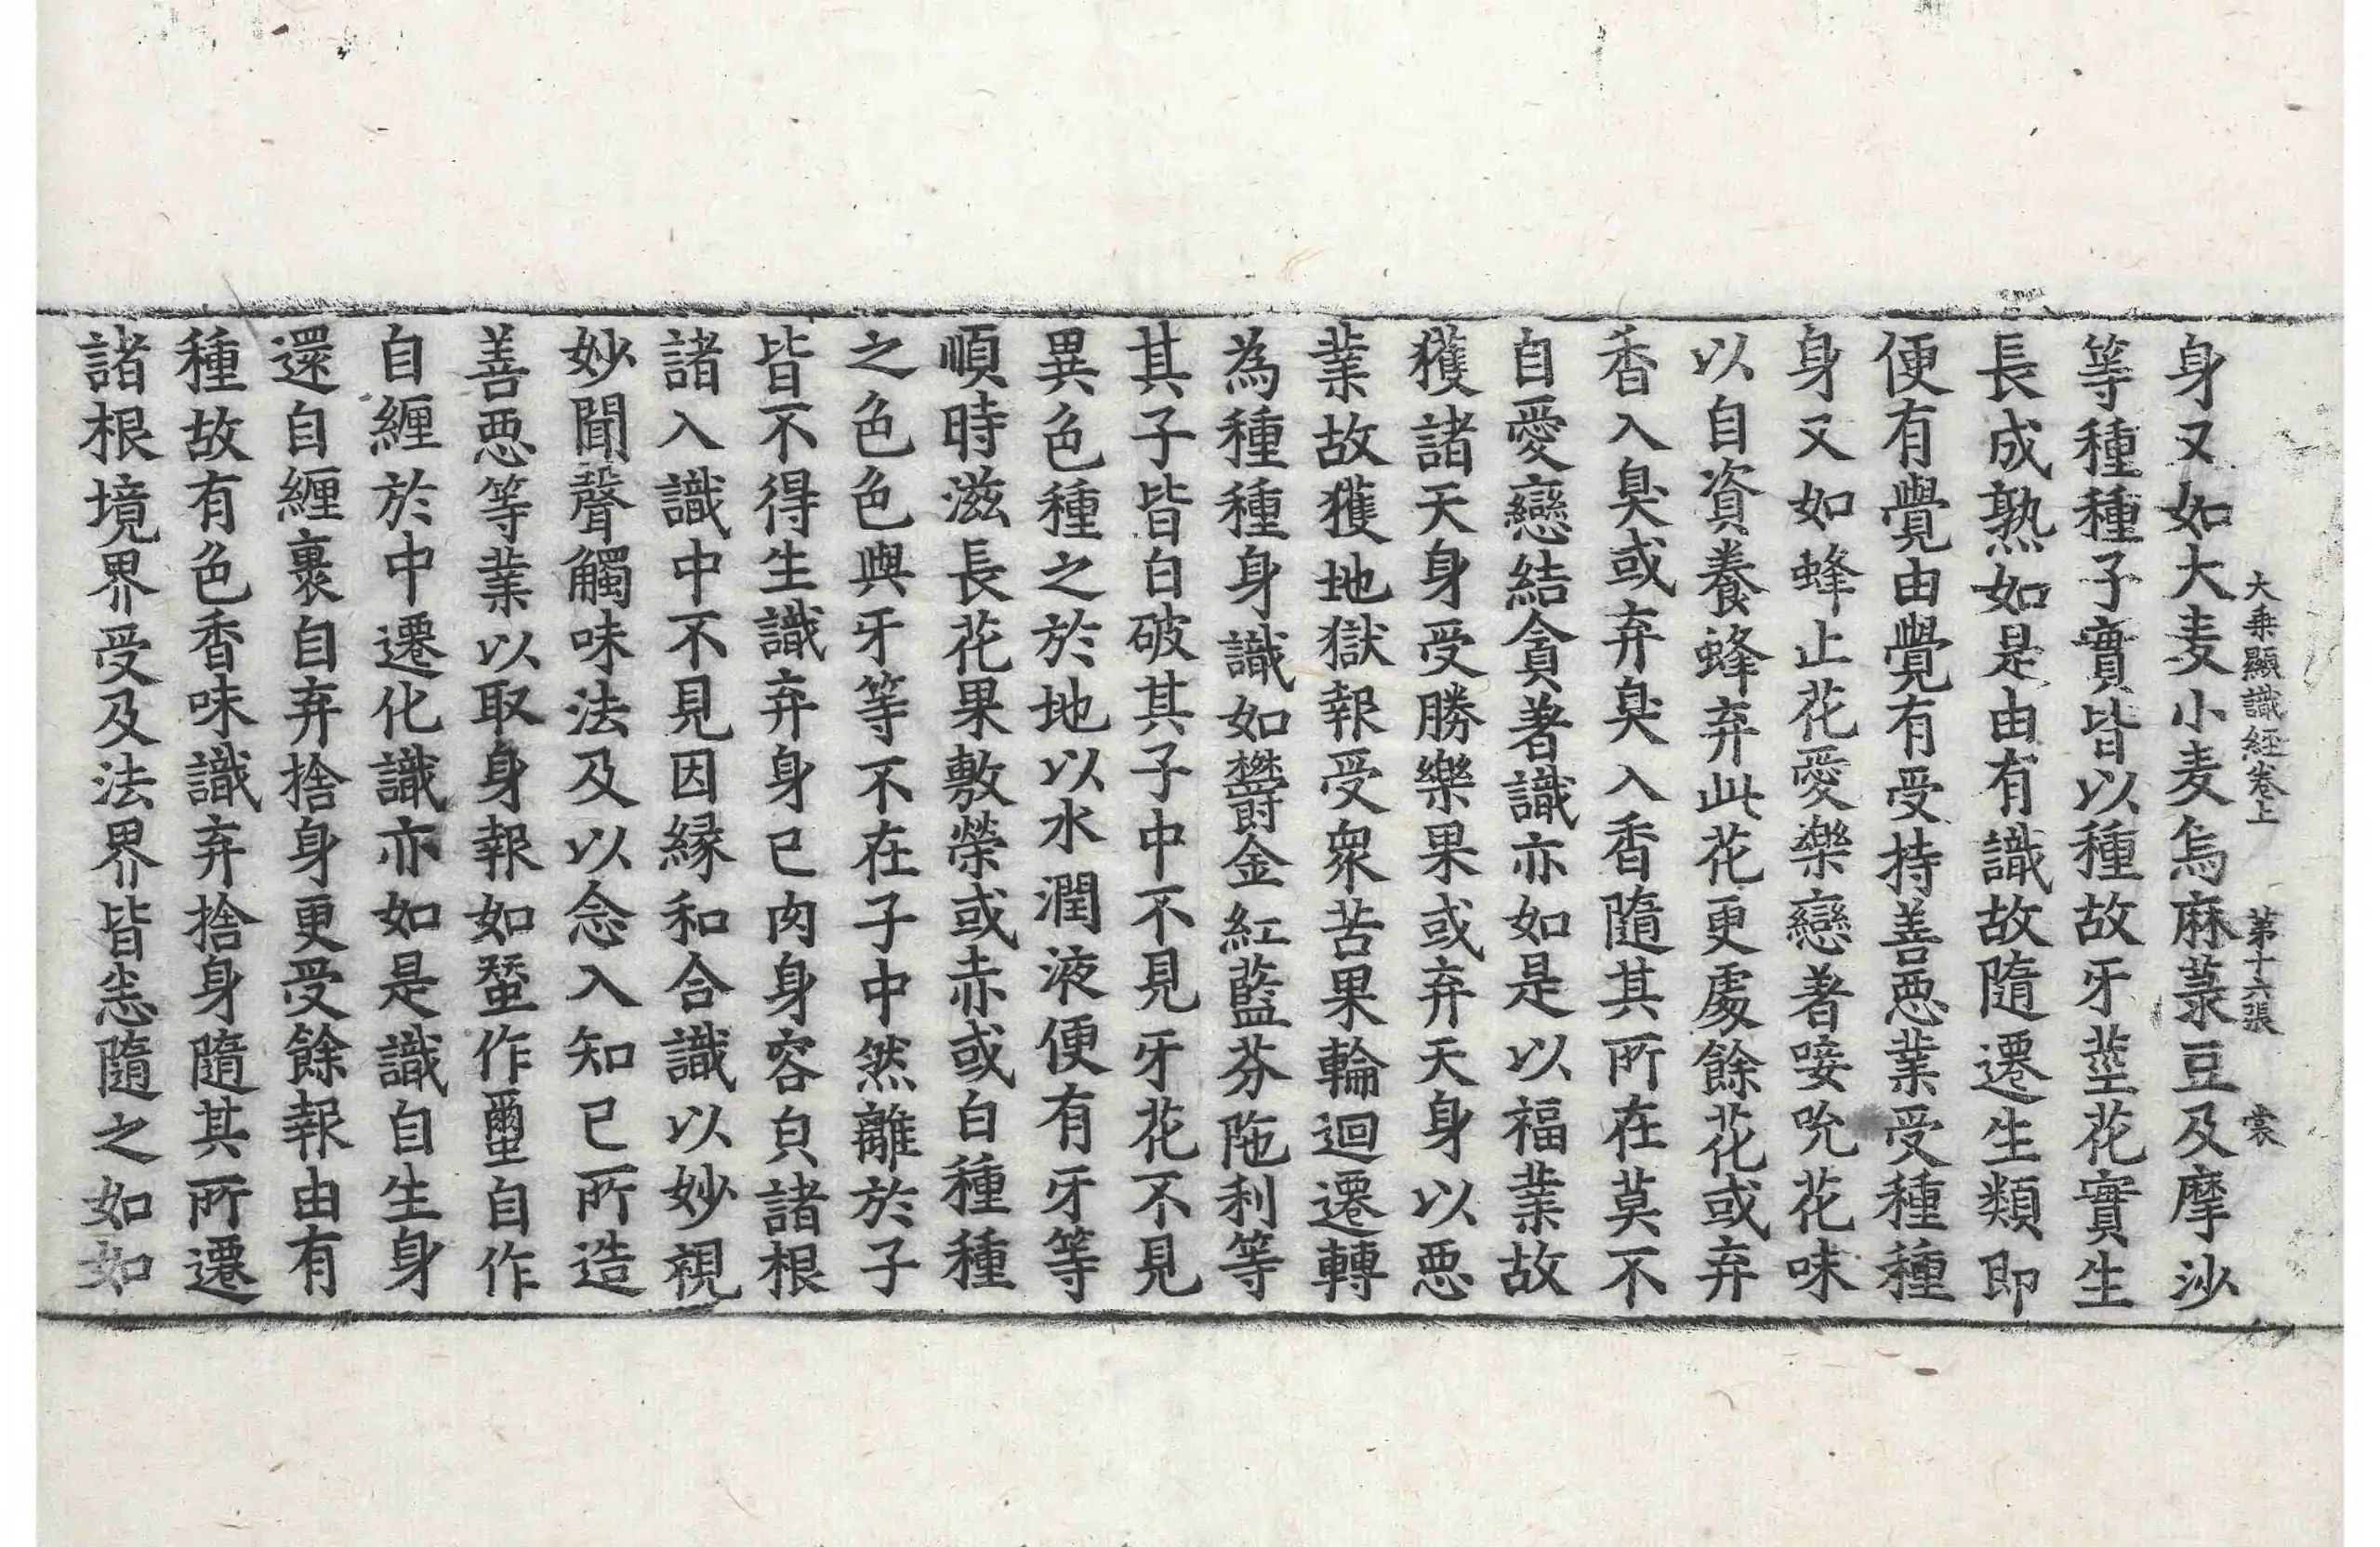 大乗顯識經卷上 第十六張 裳
身又如大麦小麦烏麻菉豆及摩沙
等種種子實皆以種故牙莖花實生
長成熟如是由有識故隨遷生類即
便有覺由覺有受持善惡業受種種
身又如蜂止花愛樂戀著唼吮花味
以自資養蜂弃此花更處餘花或弃
香入臭或弃臭入香隨其所在莫不
自愛戀結貪著識亦如是以福業故
獲諸天身受勝樂果或弃天身以惡
業故獲地獄報受眾苦果輪迴遷轉
為種種身識如欝金紅藍芬陁利等
其子皆白破其子中不見牙花不見
異色種之於地以水潤液便有牙等
順時滋長花果敷榮或赤或白種種
之色色與牙等不在子中然離於子
皆不得生識弃身已肉身容㒵諸根
諸入識中不見因縁和合識以妙視
妙聞聲觸味法及以念入知已所造
善惡等業以取身報如蝅作壐自作
自纒於中遷化識亦如是識自生身
還自纒裹自弃捨身更受餘報由有
種故有色香味識弃捨身隨其所遷
諸根境界受及法界皆悉隨之如如